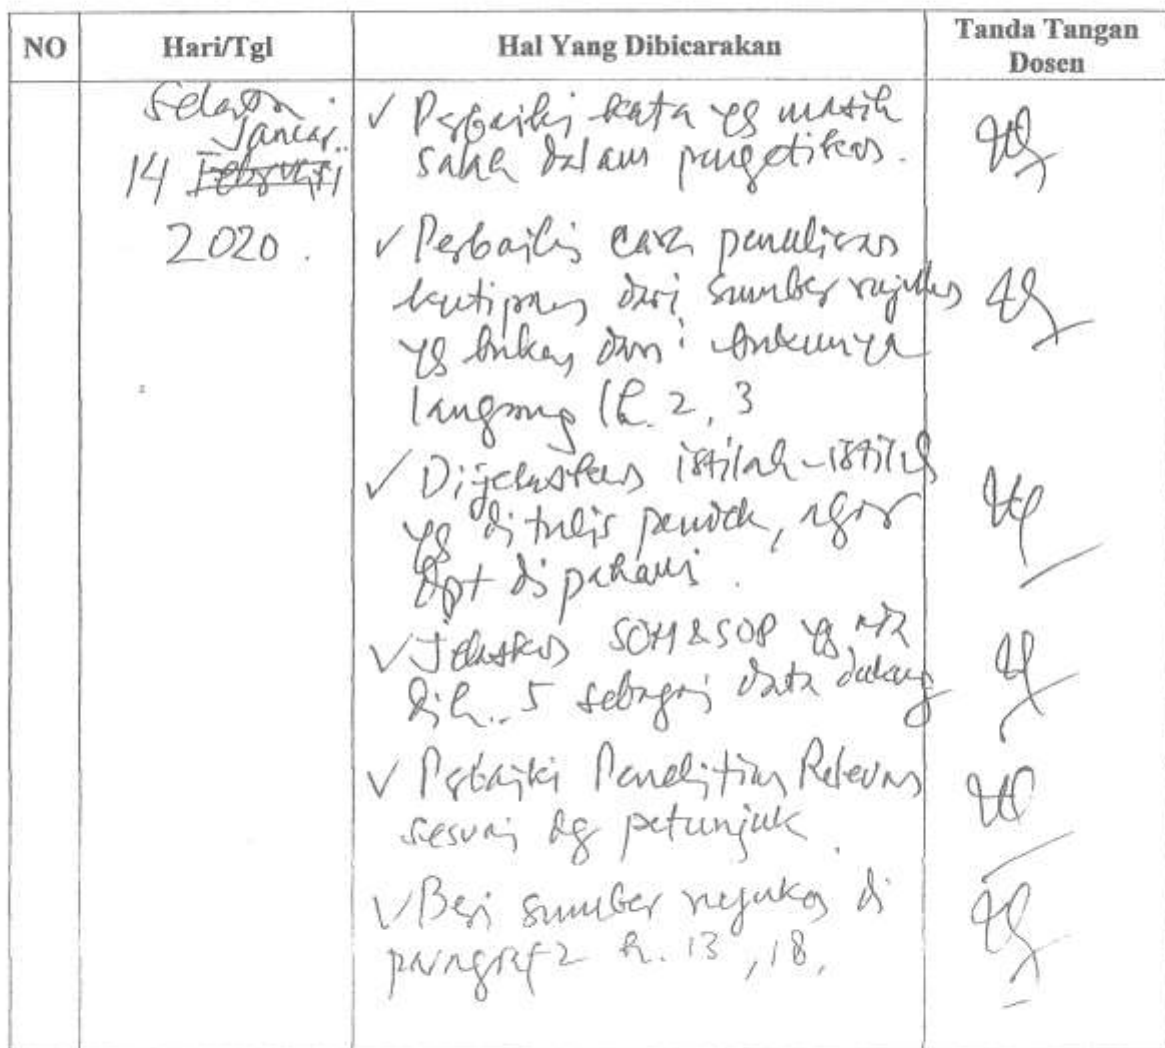 NO Hari/Tgl Hal Yang Dibicarakan Tanda Tangan Dosen
Selasa
Januar..
14 Februari
2020.
✓ Perbaiki kata yg masih
salah dalam pengetikan.
✓ Perbaiki cara penulisan
kutipan dari sumber rujukan
yg bukan dari bukunya
langsung (h. 2, 3
✓ Dijelaskan istilah-istilah
yg ditulis pendek, agar
dpt dipahami.
✓ Jelaskan SOM & SOP yg ada
di h. 5 sebagai data dukung
✓ Perbaiki Penelitian Relevan
sesuai dg petunjuk.
✓ Beri sumber rujukan di
paragraf 2 h. 13, 18,